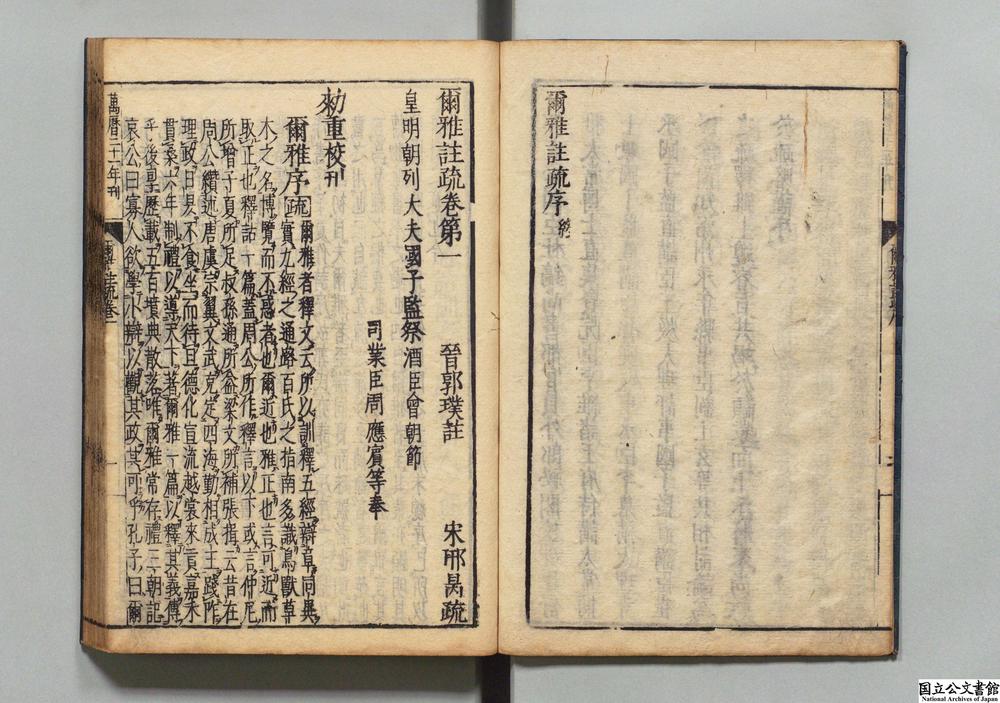 爾雅註疏序終
爾雅註疏卷第一
晉郭璞註 宋邢昺疏
皇明朝列大夫國子監祭酒臣曾朝節
司業臣周應賓等奉
勑重校刊
爾雅序疏爾雅者釋文云所以訓釋五經辯章同異
實九經之通路百氏之指南多識鳥獸草
木之名博覽而不惑者也爾近也雅正也言可近而
取正也釋詁一篇蓋周公所作釋言以下或言仲尼
所增子夏所足叔孫通所益梁文所補張揖云昔在
周公纘述唐虞宗翼文武克定四海勤相成王踐阼
理政日昃不食坐而待旦德化宣流越裳來貢嘉禾
貫桑六年制禮以導天下著爾雅一篇以釋其義傳
乎後㞷歷載五百墳典散落唯爾雅常存禮三朝記
哀公曰寡人欲學小辯以觀其政其可乎孔子曰爾
萬曆二十一年刊
爾雅註疏卷一
国立公文書館
National Archives of Japan